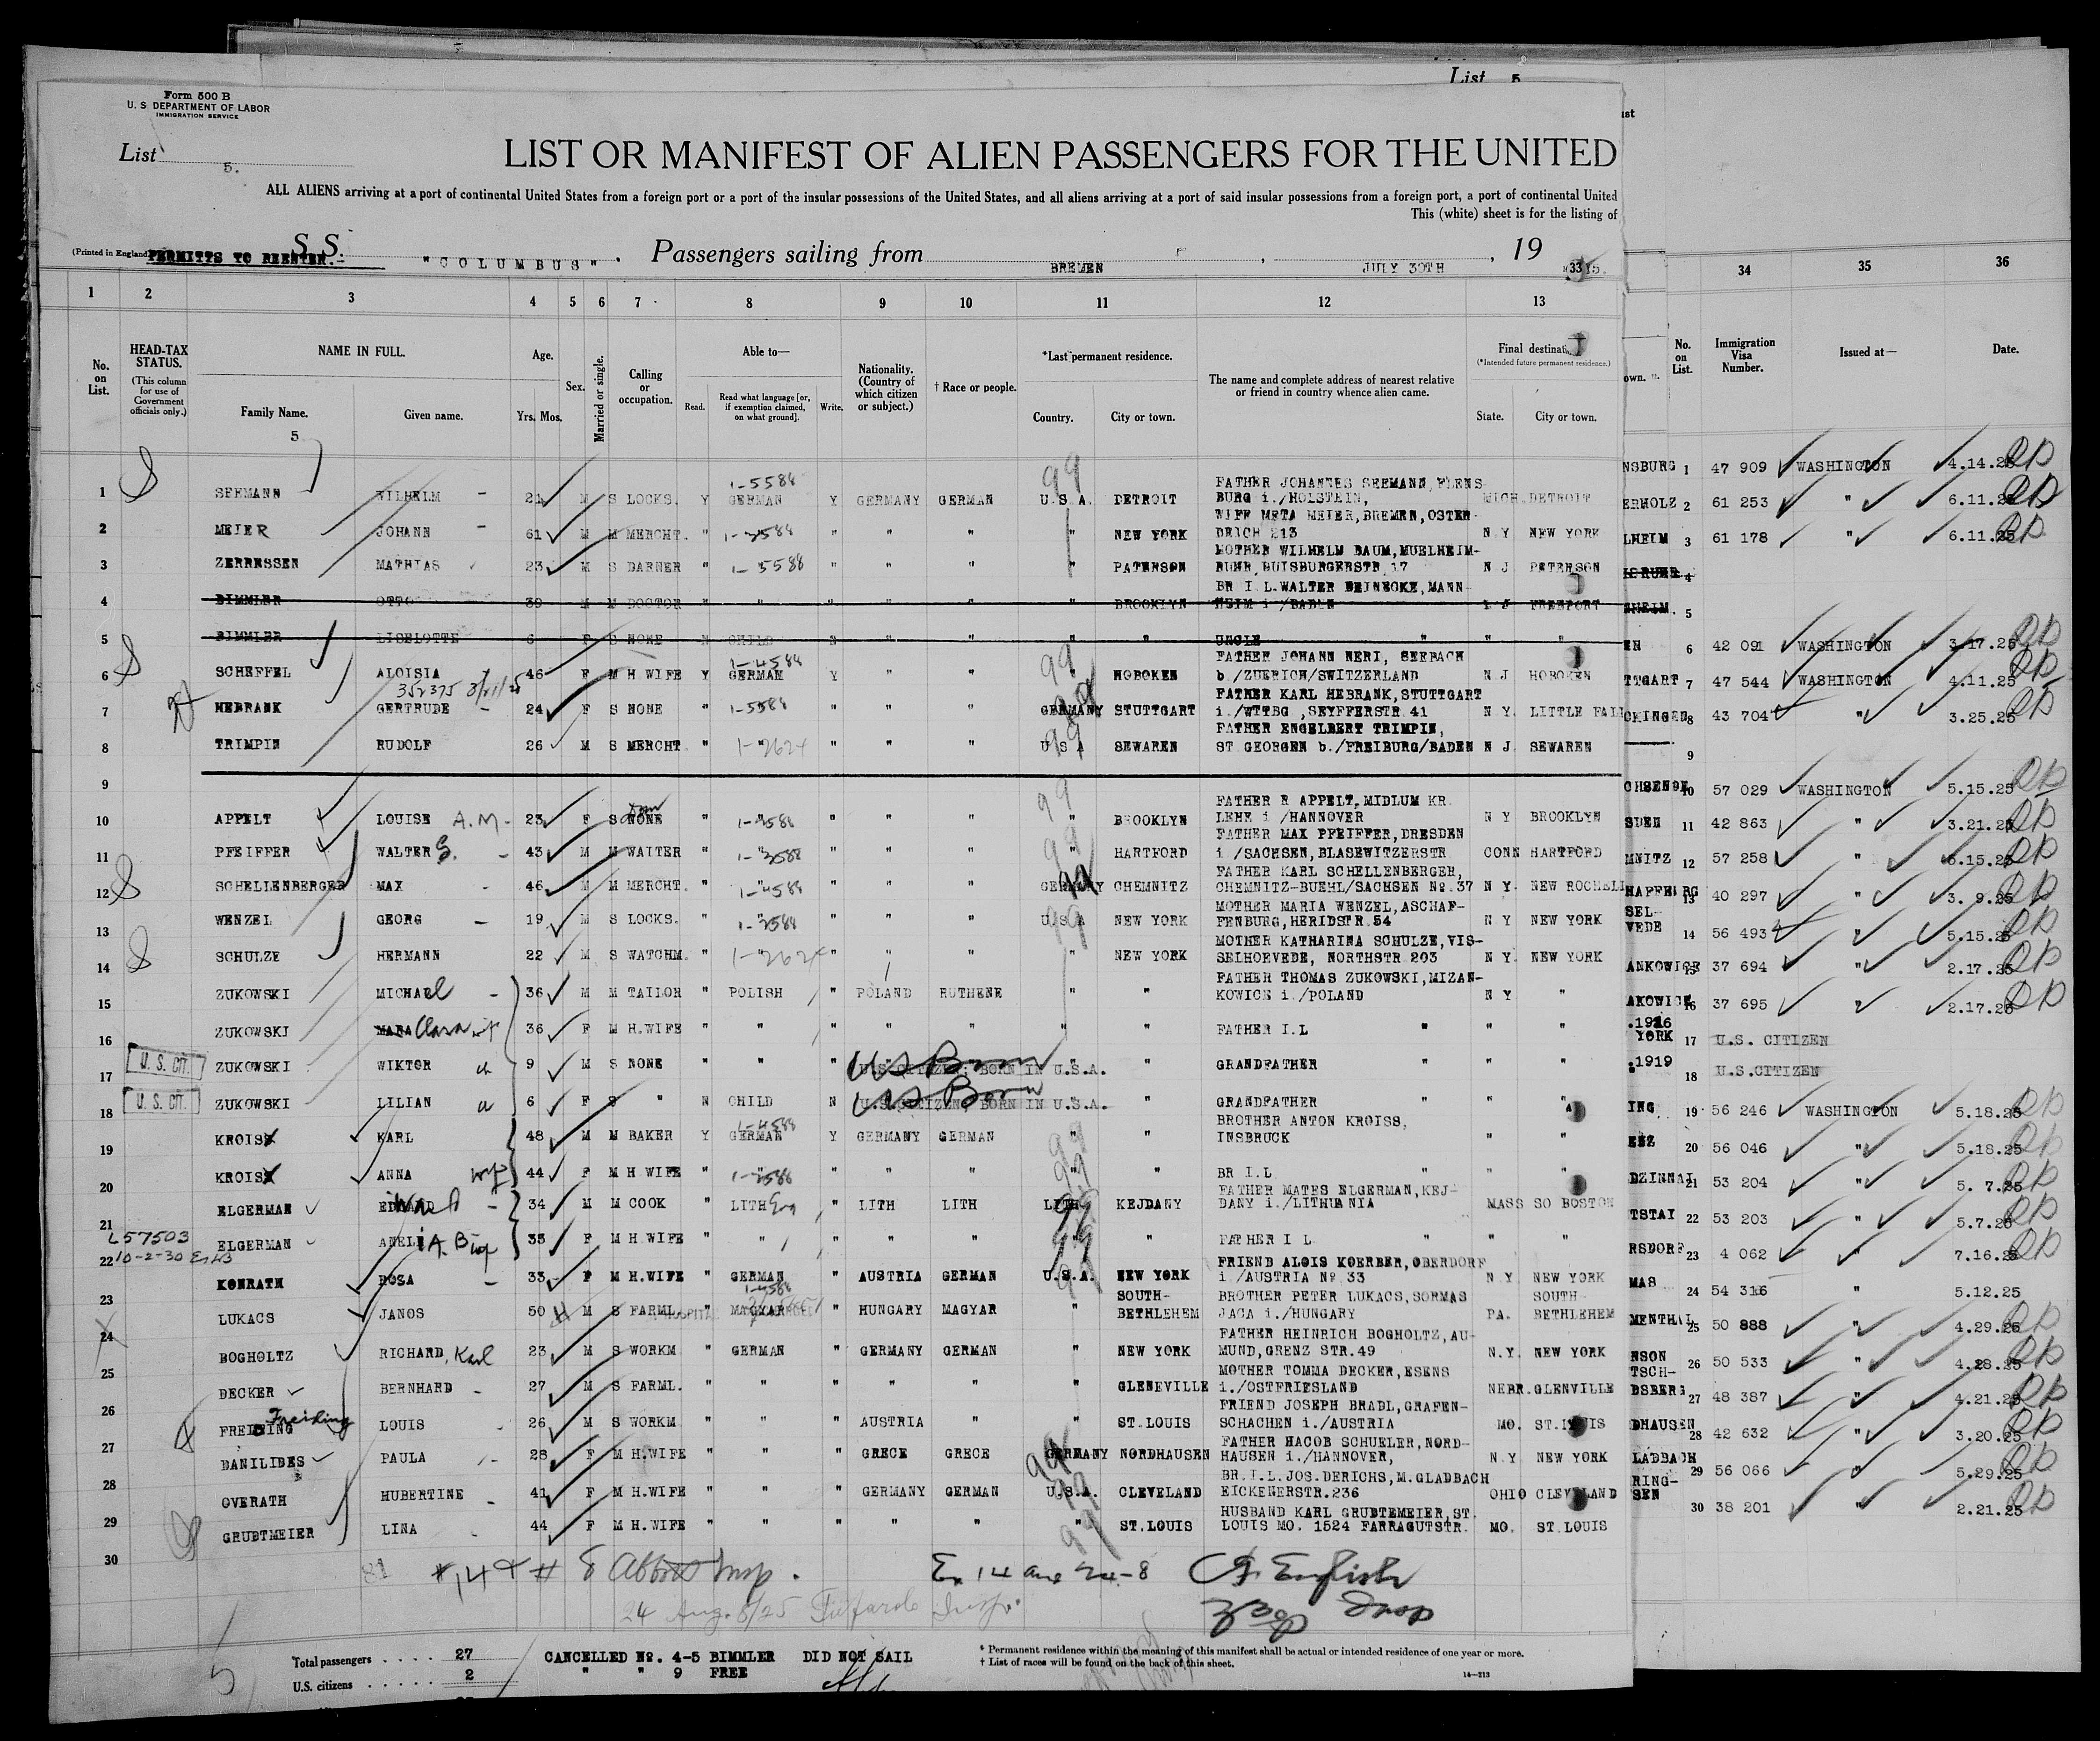 List 5
Form 500 B
U. S. DEPARTMENT OF LABOR
IMMIGRATION SERVICE
List 5.
LIST OR MANIFEST OF ALIEN PASSENGERS FOR THE UNITED
ALL ALIENS arriving at a port of continental United States from a foreign port or a port of the insular possessions of the United States, and all aliens arriving at a port of said insular possessions from a foreign port, a port of continental United
This (white) sheet is for the listing of
(Printed in England) PERMITTS TO REENTER. S S. "COLUMBUS". Passengers sailing from BREMEN , JULY 30TH , 19
1 2 3 4 5 6 7 8 9 10 11 12 13 34 35 36
No. on List.
HEAD-TAX STATUS.
(This column for use of Government officials only.)
NAME IN FULL.
Family Name. Given name.
5
Age.
Yrs. Mos.
Sex.
Married or single.
Calling or occupation.
Able to—
Read. Read what language [or, if exemption claimed, on what ground]. Write.
Nationality. (Country of which citizen or subject.)
† Race or people.
*Last permanent residence.
Country. City or town.
The name and complete address of nearest relative or friend in country whence alien came.
Final destination
(*Intended future permanent residence.)
State. City or town.
No. on List.
Immigration Visa Number.
Issued at—
Date.
1 SEEMANN WILHELM 21 M S LOCKS. Y GERMAN Y GERMANY GERMAN U.S.A. DETROIT FATHER JOHANNES SEEMANN, FLENS- BURG i./HOLSTEIN, MICH DETROIT NSBURG 1 47 909 WASHINGTON 4.14.25
2 MEIER JOHANN 61 M M MERCHT. " " " " NEW YORK WIFE META MEIER, BREMEN, OSTER- DEICH 213 N Y NEW YORK ERHOLZ 2 61 253 " 6.11.25
3 ZERRESSEN MATHIAS 23 M S DARNER " " " " PATERSON MOTHER WILHELM BAUM, MUELHEIM- RUHR, DUISBURGERSTR.17 N J PETERSON LHEIM 3 61 178 " 6.11.25
4 BIMMLER OTTO 39 M M DOCTOR " " " " " BROOKLYN BR I L. WALTER REINECKE, MANN- HEIM i./BADEN FREEPORT 4
5 BIMMLER LISELOTTE 6 F S NONE N CHILD N " " " " UNCLE " " " 5
6 SCHEFFEL ALOISIA 46 F M H WIFE Y GERMAN Y " " " HOBOKEN FATHER JOHANN NERI, SEEBACH b./ZUERICH/SWITZERLAND N.J HOBOKEN EN 6 42 091 WASHINGTON 3.17.25
352375
7 HEBRANK GERTRUDE 24 F S NONE " " " " GERMANY STUTTGART FATHER KARL HEBRANK, STUTTGART i./WTTBG , SEYFFERSTR.41 N Y. LITTLE FALL TTGART 7 47 544 WASHINGTON 4.11.25
8 TRIMPIN RUDOLF 26 M S MERCHT " " " " " U S A SEWAREN FATHER ENGELBERT TRIMPIN, ST GEORGEN b./FREIBURG/BADEN N J. SEWAREN 8 43 704 " 3.25.25
9 9
10 APPELT LOUISE A.M. 23 F S NONE " " " " " " BROOKLYN FATHER R APPELT, MIDLUM KR. LEHE i /HANNOVER N Y BROOKLYN 10 57 029 WASHINGTON 5.15.25
11 PFEIFFER WALTER G. 43 M M WAITER " " " " " HARTFORD FATHER MAX PFEIFFER, DRESDEN i./SACHSEN, BLASEWITZERSTR CONN HARTFORD SDEN 11 42 863 " 3.21.25
12 SCHELLENBERGER MAX 46 M M MERCHT. " " " " GERMANY CHEMNITZ FATHER KARL SCHELLENBERGER, CHEMNITZ-BUEHL/SACHSEN No.37 N Y. NEW ROCHELL MNITZ 12 57 258 " 5.15.25
13 WENZEL GEORG 19 M S LOCKS. " " " " " U.S.A NEW YORK MOTHER MARIA WENZEL, ASCHAF- FENBURG, HERIDSTR.54 N Y NEW YORK 13 40 297 " 3. 9.25
14 SCHULZE HERMANN 22 M S WATCHM. " " " " NEW YORK MOTHER KATHARINA SCHULZE, VIS- SELHOEVEDE, NORTHSTR 203 N Y. NEW YORK SEL- VEDE 14 56 493 " 5.15.25
15 ZUKOWSKI MICHAEL 36 M M TAILOR " POLISH " POLAND RUTHENE " " FATHER THOMAS ZUKOWSKI, MIZAN- KOWICE i./POLAND N Y " ANKOWICE 15 37 694 " 2.17.25
16 ZUKOWSKI MARA Clara wf 36 F M H.WIFE " " " " " " " FATHER I.L " " " AKOWICE 16 37 695 " 2.17.25
17 U. S. CIT. ZUKOWSKI WIKTOR ch 9 M S NONE " " " U.S. CITIZEN; BORN IN U.S.A. US Born " GRANDFATHER " " " YORK 17 U.S. CITIZEN
18 U. S. CIT. ZUKOWSKI LILIAN 6 F S " N CHILD N U.S. CITIZEN; BORN IN U.S.A. US Born " GRANDFATHER " " " .1919 18 U.S.CITIZEN
19 KROISS KARL 48 M M BAKER Y GERMAN Y GERMANY GERMAN " " BROTHER ANTON KROISS, INSBRUCK " " ING 19 56 246 WASHINGTON 5.18.25
20 KROISS ANNA wf 44 F M H WIFE " " " " " " " BR I.L. " " " 20 56 046 " 5.18.25
21 ELGERMAN EDWARD 34 M M COOK " LITH Eng " LITH LITH LITH. KEJDANY FATHER MATES ELGERMAN, KEJ- DANY i./LITHUENIA MASS SO BOSTON DZINNAI 21 53 204 " 5. 7.25
L57503
10-2-30
22 ELGERMAN ANELI A. B wf 35 F M H.WIFE " " " " FATHER I L " " " TSTAI 22 53 203 " 5.7.25
23 KONRATH ROSA 33 F M H.WIFE " GERMAN " AUSTRIA GERMAN U.S.A. NEW YORK FRIEND ALOIS KOERBER, OBERDORF i./AUSTRIA No.33 N Y. NEW YORK RSDORF 23 4 062 " 7.16.25
24 LUKACS JANOS 50 M S FARML. " MAGYAR " HUNGARY MAGYAR " SOUTH- BETHLEHEM BROTHER PETER LUKACS, SORMAS JACA i./HUNGARY PA. SOUTH BETHLEHEM MAS 24 54 316 " 5.12.25
25 BOGHOLTZ RICHARD, Karl 23 M S WORKM " GERMAN " GERMANY GERMAN " NEW YORK FATHER HEINRICH BOGHOLTZ, AU- MUND, GRENZ STR.49 N.Y. NEW YORK MENTHAL 25 50 888 " 4.29.25
26 DECKER BERNHARD 27 M S FARML. " " " " " " GLENEVILLE MOTHER TOMMA DECKER, ESENS i./OSTFRIESLAND NEBR. GLENVILLE NSON TSCH- 26 50 533 " 4.28.25
27 FREIDING Freiding LOUIS 26 M S WORKM " " " AUSTRIA " " ST.LOUIS FRIEND JOSEPH BRADL, GRAFEN- SCHACHEN i./AUSTRIA MO. ST.LOUIS BSBERG 27 48 387 " 4.21.25
28 DANILIDES PAULA 28 F M H.WIFE " " " GRECE GRECE GERMANY NORDHAUSEN FATHER HACOB SCHUELER, NORD- HAUSEN i./HANNOVER, N.Y NEW YORK DHAUSEN 28 42 632 " 3.20.25
29 OVERATH HUBERTINE 41 F M H.WIFE " " " GERMANY GERMAN U.S.A. CLEVELAND BR.I.L.JOS.DERICHS, M.GLADBACH EICKENERSTR.236 OHIO CLEVELAND LADBACH 29 56 066 " 5.29.25
30 GRUDTMEIER LINA 44 F M H.WIFE " " " " " " ST.LOUIS HUSBAND KARL GRUDTEMEIER, ST. LOUIS MO. 1524 FARRAGUTSTR. MO. ST.LOUIS RING- SEN 30 38 201 " 2.21.25
81
English
24 Aug. 8/25
Insp
Total passengers . . . . 27 CANCELLED No. 4-5 BIMMLER DID NOT SAIL
U.S. citizens . . . . . 2 " " 9 FREE
* Permanent residence within the meaning of this manifest shall be actual or intended residence of one year or more.
† List of races will be found on the back of this sheet.
14—213